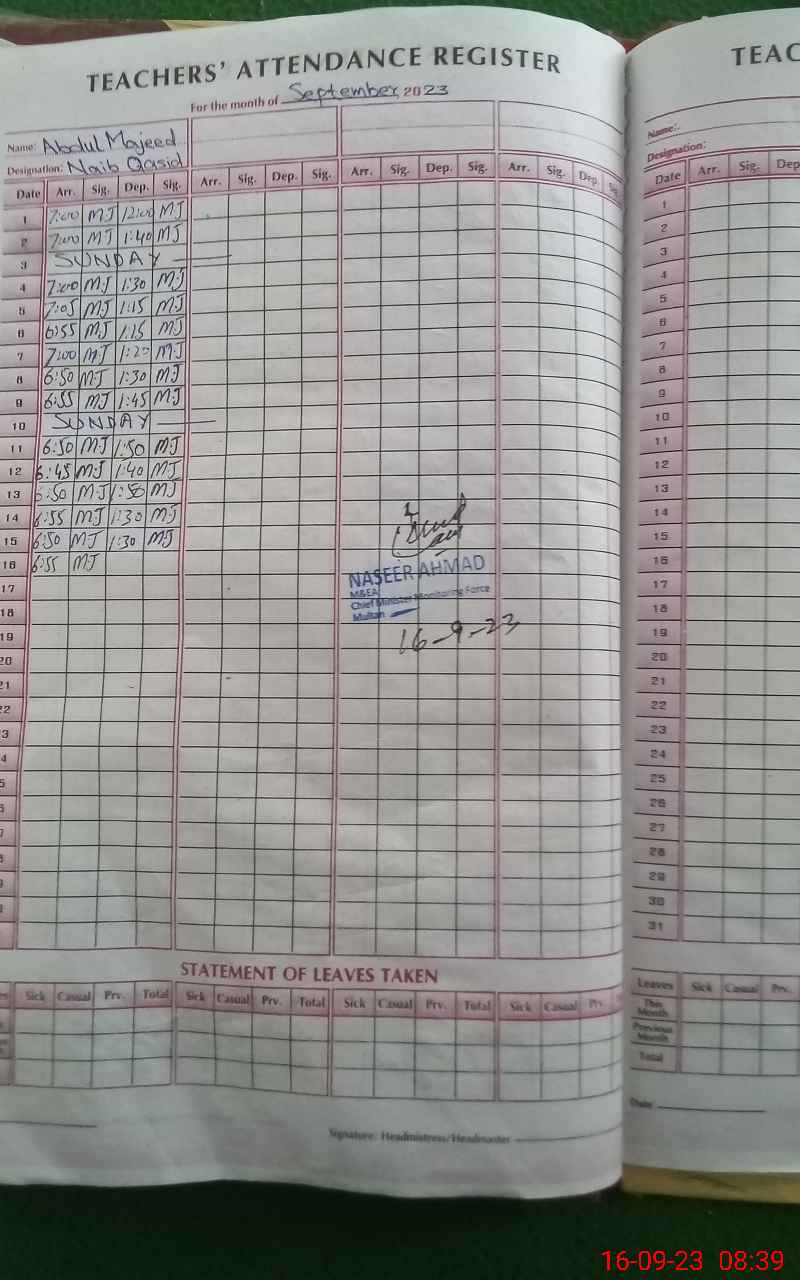 TEACHERS' ATTENDANCE REGISTER
For the month of September, 2023
Name: Abdul Majeed
Designation: Naib Qasid
Date Arr. Sig. Dep. Sig. Arr. Sig. Dep. Sig. Arr. Sig. Dep. Sig. Arr. Sig. Dep.
1 7:00 MJ 12:00 MJ
2 7:00 MJ 1:40 MJ
3 SUNDAY
4 7:00 MJ 1:30 MJ
5 7:05 MJ 1:15 MJ
6 6:55 MJ 1:15 MJ
7 7:00 MJ 1:20 MJ
8 6:50 MJ 1:30 MJ
9 6:55 MJ 1:45 MJ
10 SUNDAY
11 6:50 MJ 1:50 MJ
12 6:45 MJ 1:40 MJ
13 6:50 MJ 1:50 MJ
14 6:55 MJ 1:30 MJ
15 6:50 MJ 1:30 MJ
16 6:55 MJ
17
18
19
20
21
22
3
4
5
NASEER AHMAD
M&EA
Chief Minister Monitoring Force
Multan
16-9-23
STATEMENT OF LEAVES TAKEN
Sick Casual Prv. Total Sick Casual Prv. Total Sick Casual Prv. Total Sick Casual Prv.
Signature: Headmistress/Headmaster
TEAC
Name:
Designation:
Date Arr. Sig. Dep
1
2
3
4
5
6
7
8
9
10
11
12
13
14
15
16
17
18
19
20
21
22
23
24
25
26
27
28
29
30
31
Leaves Sick Casual Prv.
This Month
Previous Month
Total
Date
16-09-23 08:39